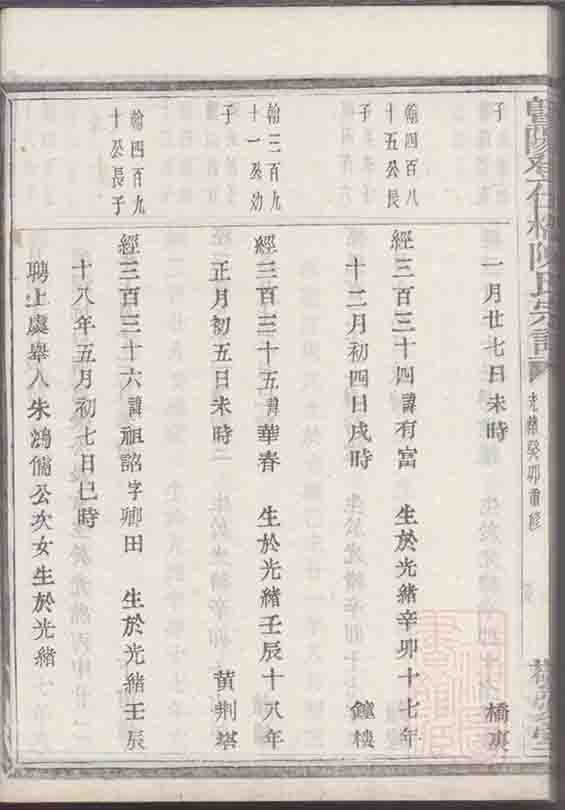 暨陽
陳氏宗譜
光緒癸卯重修
子
一月廿七日未時
橋東
翰四百八
十五公長
子
經三百三十四諱有富 生於光緒辛卯十七年
十二月初四日戌時
鐘樓
翰三百九
十一公幼
子
經三百三十五諱華春 生於光緒壬辰十八年
正月初五日未時
黄荆塔
翰四百九
十公長子
經三百三十六諱祖詔字卿田 生於光緒壬辰
十八年五月初七日巳時
聘上虞舉人朱鴻儒公次女生於光緒